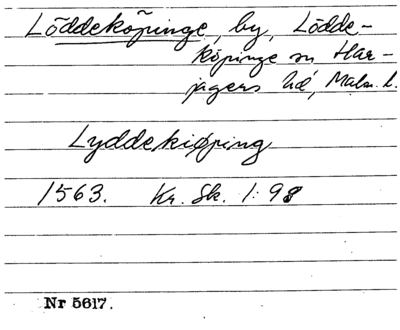 Löddeköpinge, by, Lödde-
köpinge sn Har-
jagers hd, Malm. l.
Lyddekiøping
1563. Kr. Sk. 1:98
Nr 5617.